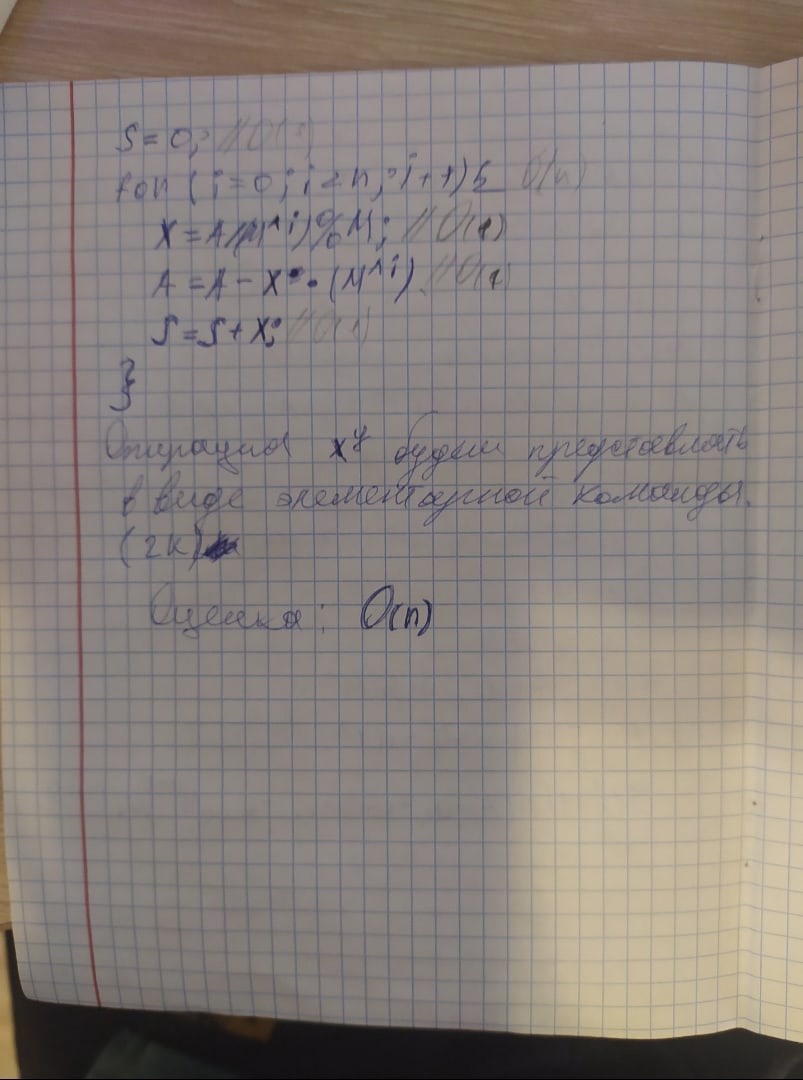 S = 0; //O(1)
for (i = 0; i < n; i++) { O(n)
X = A/(M^i)%M; //O(1)
A = A - X · (M^i) //O(1)
S = S + X; //O(1)
}
Операция x^y будем представлять
в виде элементарной команды.
(2к)
Оценка: O(n)